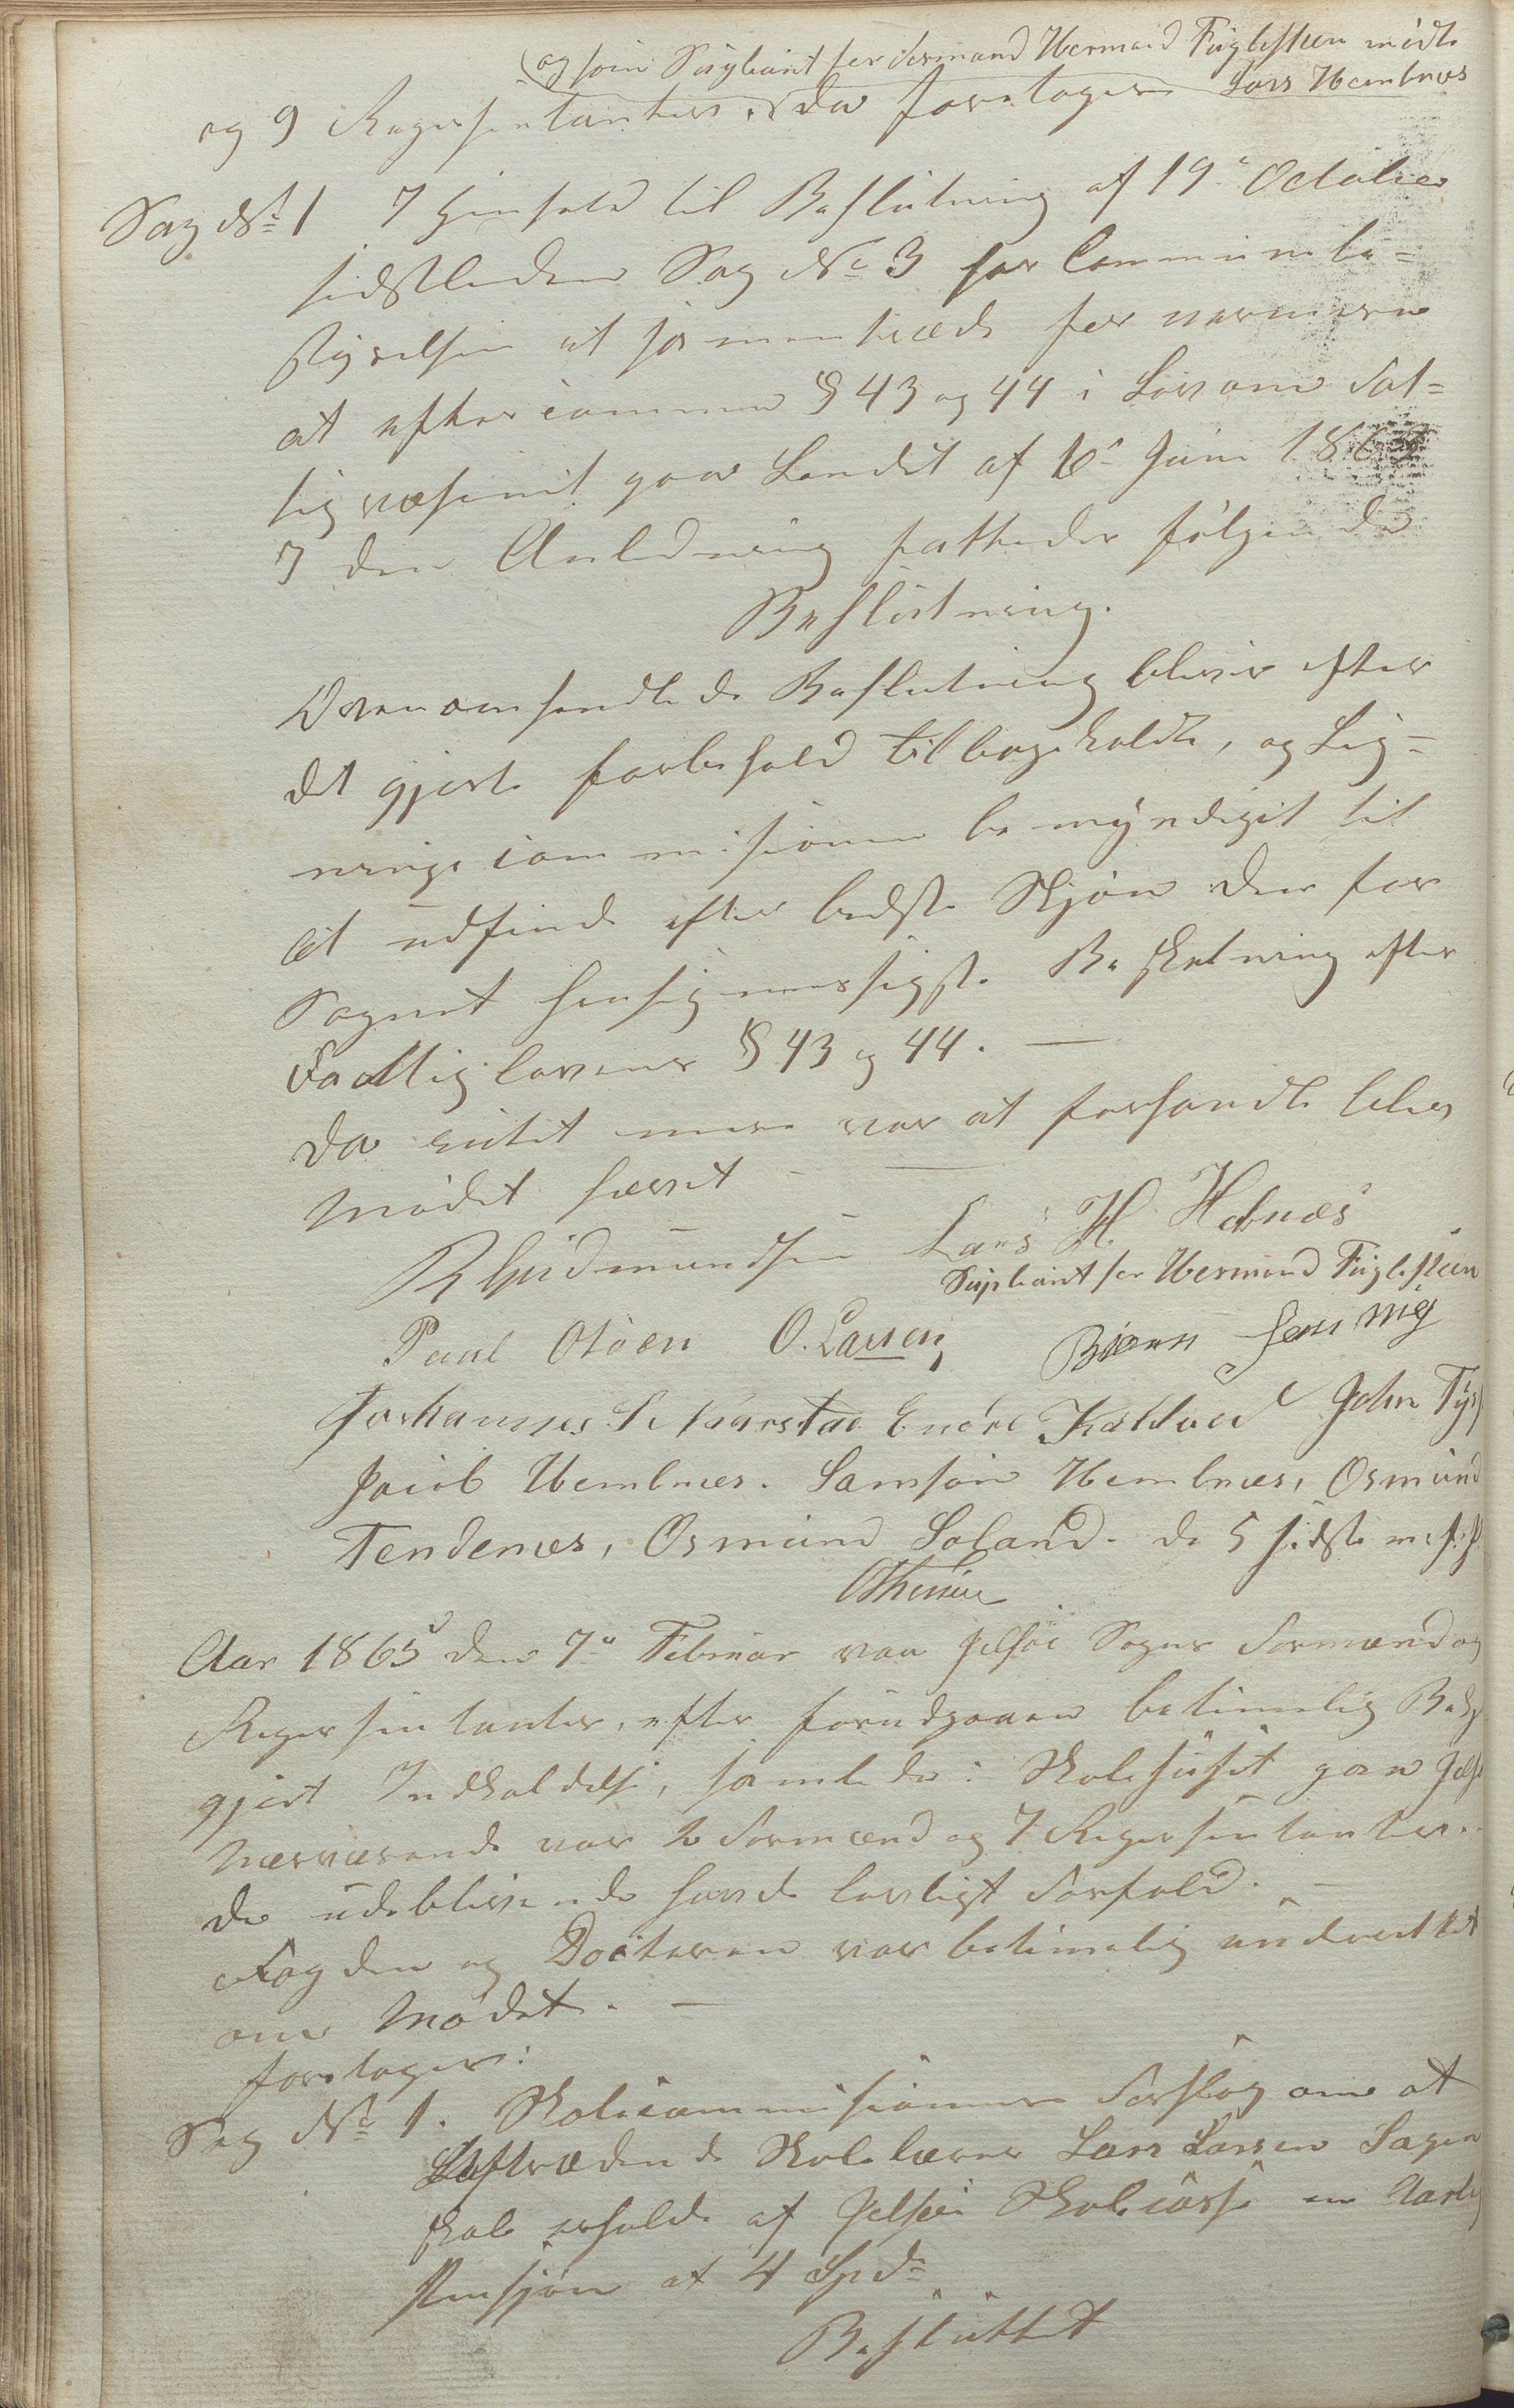 og som Supleant for Formand Hermand Fuglesteen mødte
Lars Hembnes
og 9 Repersentanter. Da foretages
Sag No 1 I Henhold til Beslutning af 19de October
sidstleden Sag No 3 har Communebe=
styrelsen at sammentræde for nærmere
at efterkomme § 43 og 44 i Lov om Fat=
tigvæsenet paa Landet af 6te Juni 1863
I den Anledning fattedes følgende
Beslutning.
Ovenomhandlede Beslutning bliver efter
det gjorte forbehold tilbagekaldte, og Lig=
nings commisionen bemyndiget til
at udfinde efter bedste Skjøn den for
Sognet hensigmæssigste Beskatning efter
Fattiglovens § 43 og 44. —
Da intet mere var at forhandle blev
Mødet hævet —
R Gudmundsen Lars H. Hebnes
Supleant for Hermand Fuglesteen
Paul Otöen O. Larsen Biørn
Johannes S Naarstad Endre John
Jacob Hembnes. Samson Hembnes, Osmund
Tendenes, Osmund Foland. de 5 sidste m. f. P.
Aar 1865 den 7de Februar var Jelsøe Sogns Formænd og
Repersentanter, efter forudgaaen betimelig Bekj
gjort Indkaldelse, samlede i Skolehuset paa Jels
Nærværende var 2 Formænd og 7 Repersentanter.
de udeblivende havde lovligt Forfald. —
Fogden og Doctoren var betimelig underrettet
om Mødet. —
foretages:
Sag No 1. Skolecommisionens Forslag om at
aftrædende Skolelærer Lars Larsen Sagen
skal erholde af Jelsøe Skolecasse en Aarlig
Pensjon af 4 Spd
Besluttet